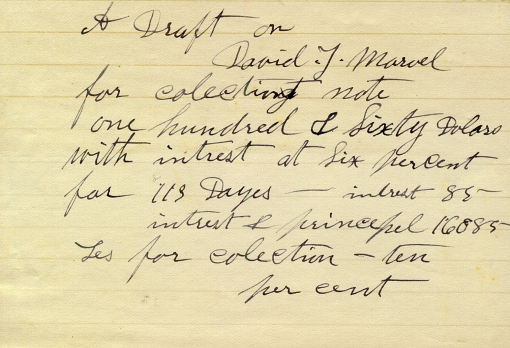 A Draft on
David. J. Marvel
for colecting note
one hundred & Sixty Dolars
with intrest at Six percent
for 113 Dayes — intrest 85
intrest & princepel 16085
for colection - ten
per cent